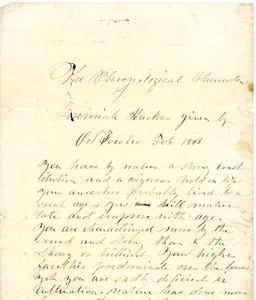 The Phrenological Character
of
Jeremiah Hacker given by
O S Fowler Feb 1843
You have by nature a strong const
itution and a vigorous hold on life
Your ancestors probably lived to a
great age. You will mature
late and improve with age.
You are characterised more by the
sound and strong than by the
showy or brilliant. Your higher
faculties predominate over the lower
yet you are sadly deficient in
cultivation. Nature has done more